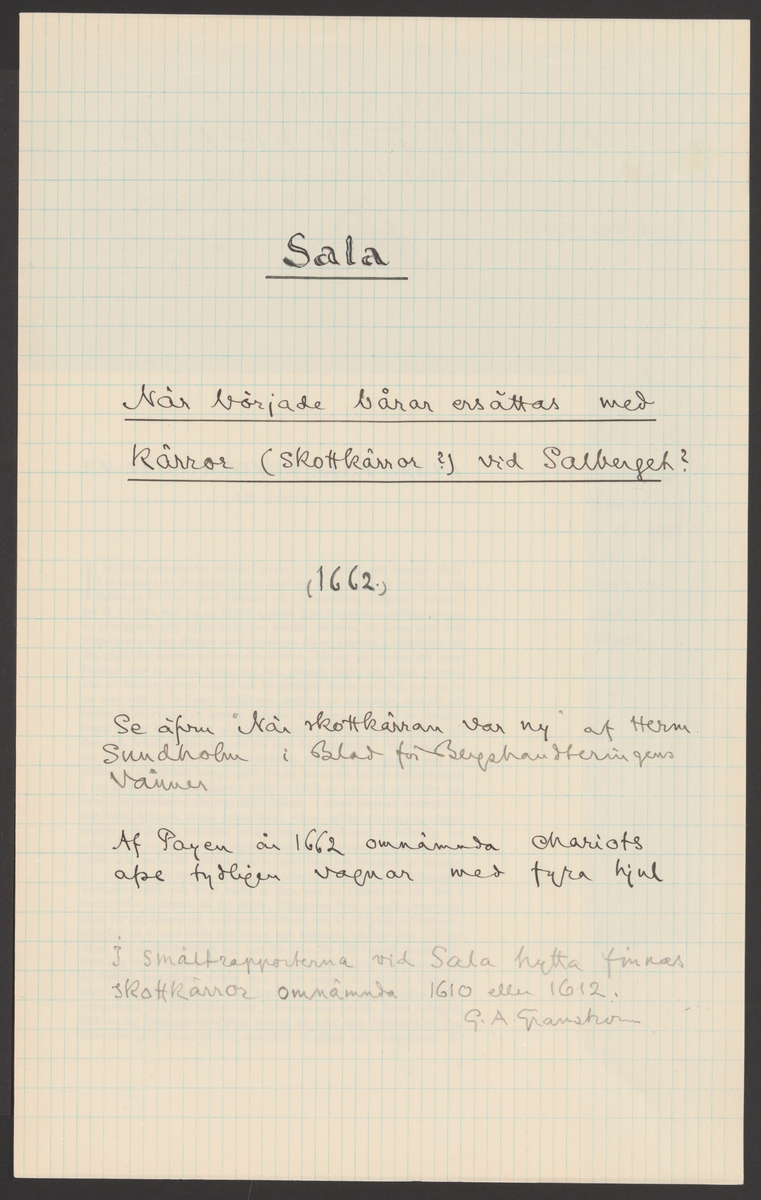 Sala
När började bårar ersättas med
kärror (skottkärror?) vid Salberget?
(1662.)
Se äfven "När skottkärran var ny" af Herm
Sundholm i Blad för Bergshandteringens
Vänner
Af Payen år 1662 omnämnda chariots
afse tydligen vagnar med fyra hjul
I smältrapporterna vid Sala hytta finnas
skottkärror omnämnda 1610 eller 1612.
G. A. Granström